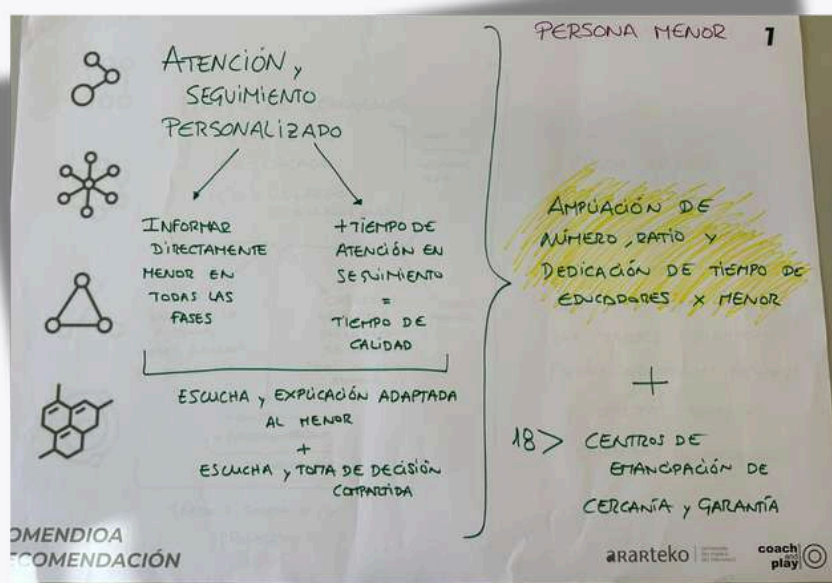 PERSONA MENOR 1
ATENCIÓN y
SEGUIMIENTO
PERSONALIZADO
INFORMAR
DIRECTAMENTE
MENOR EN
TODAS LAS
FASES
+TIEMPO DE
ATENCIÓN EN
SEGUIMIENTO
=
TIEMPO DE
CALIDAD
ESCUCHA y EXPLICACIÓN ADAPTADA
AL MENOR
+
ESCUCHA y TOMA DE DECISIÓN
COMPARTIDA
AMPLIACIÓN DE
NÚMERO, RATIO Y
DEDICACIÓN DE TIEMPO DE
EDUCADORES X MENOR
+
18> CENTROS DE
EMANCIPACIÓN DE
CERCANÍA y GARANTÍA
OMENDIOA
ECOMENDACIÓN
ARARTEKO
coach
and
play